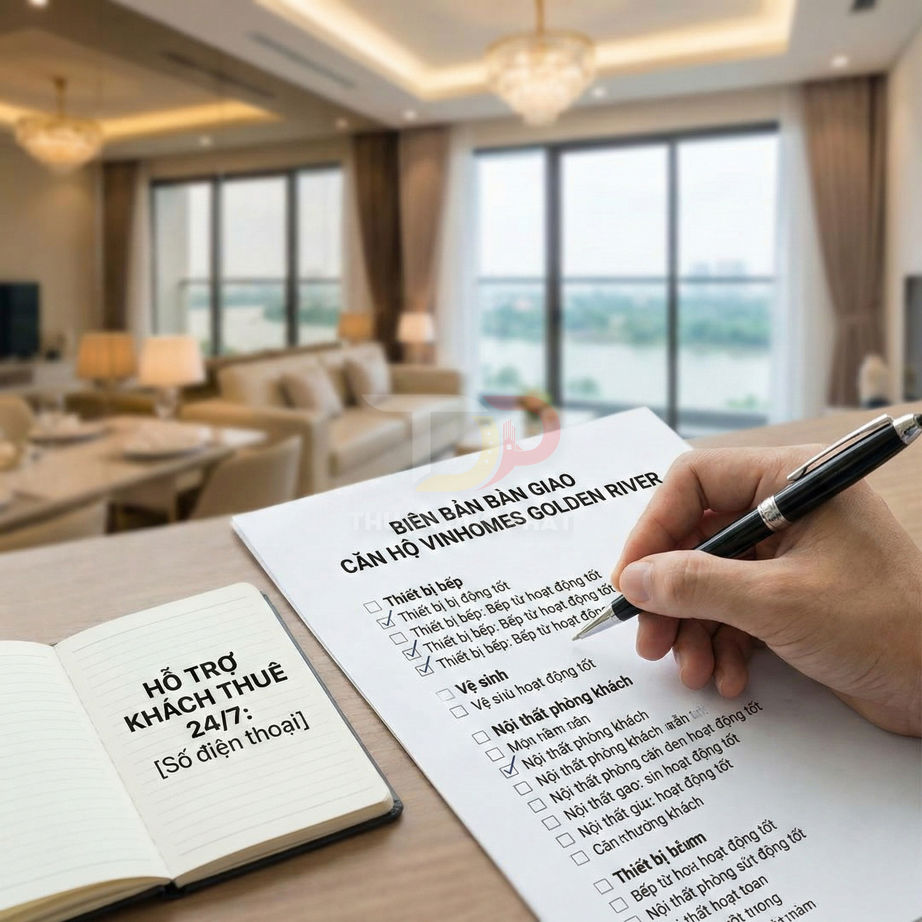 BIÊN BẢN BÀN GIAO
CĂN HỘ VINHOMES GOLDEN RIVER
Thiết bị bếp
Thiết bị bị động tốt
Thiết bị bếp: Bếp từ hoạt động tốt
Thiết bị bếp: Bếp từ hoạt động tốt
Thiết bị bếp: Bếp từ hoạt động tốt
Vệ sinh
Vệ siủ hoạt động tốt
Nội thất phòng khách
Mọn hầm nán
Nội thất phòng khách
Nội thất phòng khách
Nội thất phòng cản den hoạt động tốt
Nội thất gao: sin hoạt động tốt
Nội thất giu: hoạt động tốt
khách
Thiết bị
Bếp từ hơi hoạt động tốt
Nội thất phòng sửt động tốt
thất hoạt toan
HỖ TRỢ
KHÁCH THUÊ
24/7:
[Số điện thoại]